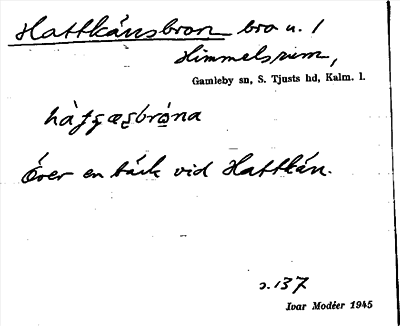 Hattkärrsbron bro u. /
Himmelsrum,
Gamleby sn, S. Tjusts hd, Kalm. l.
Över en bäck vid Hattkärr.
s. 137
Ivar Modéer 1945